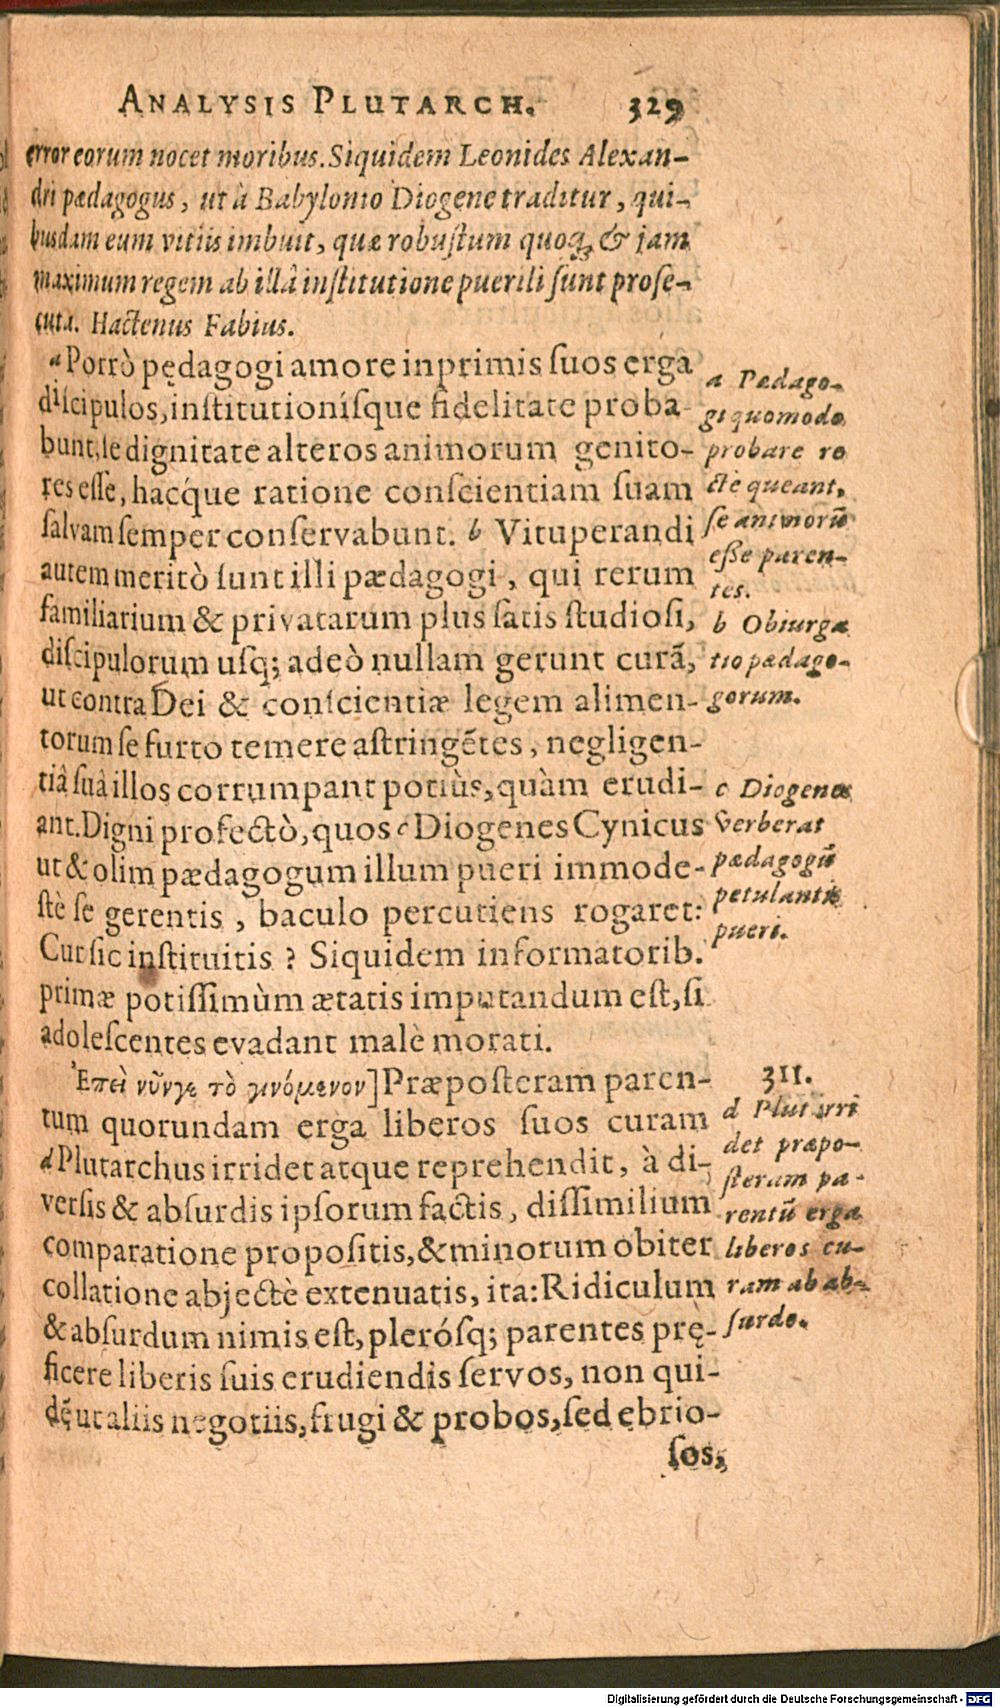 ANALYSIS PLUTARCH. 329
error eorum nocet moribus. Siquidem Leonides Alexan-
dri pædagogus, ut â Babylonio Diogene traditur, qui-
busdam eum vitiis imbuit, quæ robuſtum quoq; & jam
maximum regem ab illâ inſtitutione puerili ſunt proſe-
cuta. Hactenus Fabius.
a Porrò pędagogi amore inprimis ſuos erga
diſcipulos, inſtitutioníſque fidelitate proba-
bunt, ſe dignitate alteros animorum genito-
res eſſe, hac'que ratione conſcientiam ſuam
ſalvam ſemper conſervabunt. b Vituperandi
autem meritò ſunt illi pædagogi, qui rerum
familiarium & privatarum plus ſatis ſtudioſi,
diſcipulorum uſq; adeò nullam gerunt curã,
ut contra Dei & conſcientiæ legem alimen-
torum ſe furto temere aſtringẽtes, negligen-
tiâ ſuâ illos corrumpant potiùs, quàm erudi-
ant. Digni profectò, quos c Diogenes Cynicus
ut & olim pædagogum illum pueri immode-
ſtè ſe gerentis, baculo percutiens rogaret:
Cur ſic inſtituitis? Siquidem informatorib.
primæ potiſſimùm ætatis imputandum eſt, ſi
adoleſcentes evadant malè morati.
Ἐπεὶ νῦν γε τὸ γινόμενον] Præpoſteram paren-
tum quorundam erga liberos ſuos curam
d Plutarchus irridet atque reprehendit, à di-
verſis & abſurdis ipſorum factis, diſſimilium
comparatione propoſitis, & minorum obiter
collatione abjectè extenuatis, ita: Ridiculum
& abſurdum nimis eſt, pleróſq; parentes prę-
ficere liberis ſuis erudiendis ſervos, non qui-
dẽ ut aliis negotiis, frugi & probos, ſed ebrio-
ſos,
a Pædago-
gi quomodo
probare re
cte queant,
ſe animorũ
eſſe paren-
tes.
b Obiurga
tio pædago-
gorum.
c Diogenes
Verberat
pædagogũ
petulantis
pueri.
311.
d Plut irri
det præpo-
ſteram pa-
rentũ erga
liberos cu-
ram ab ab-
ſurdo.
Digitalisierung gefördert durch die Deutsche Forschungsgemeinschaft - DFG